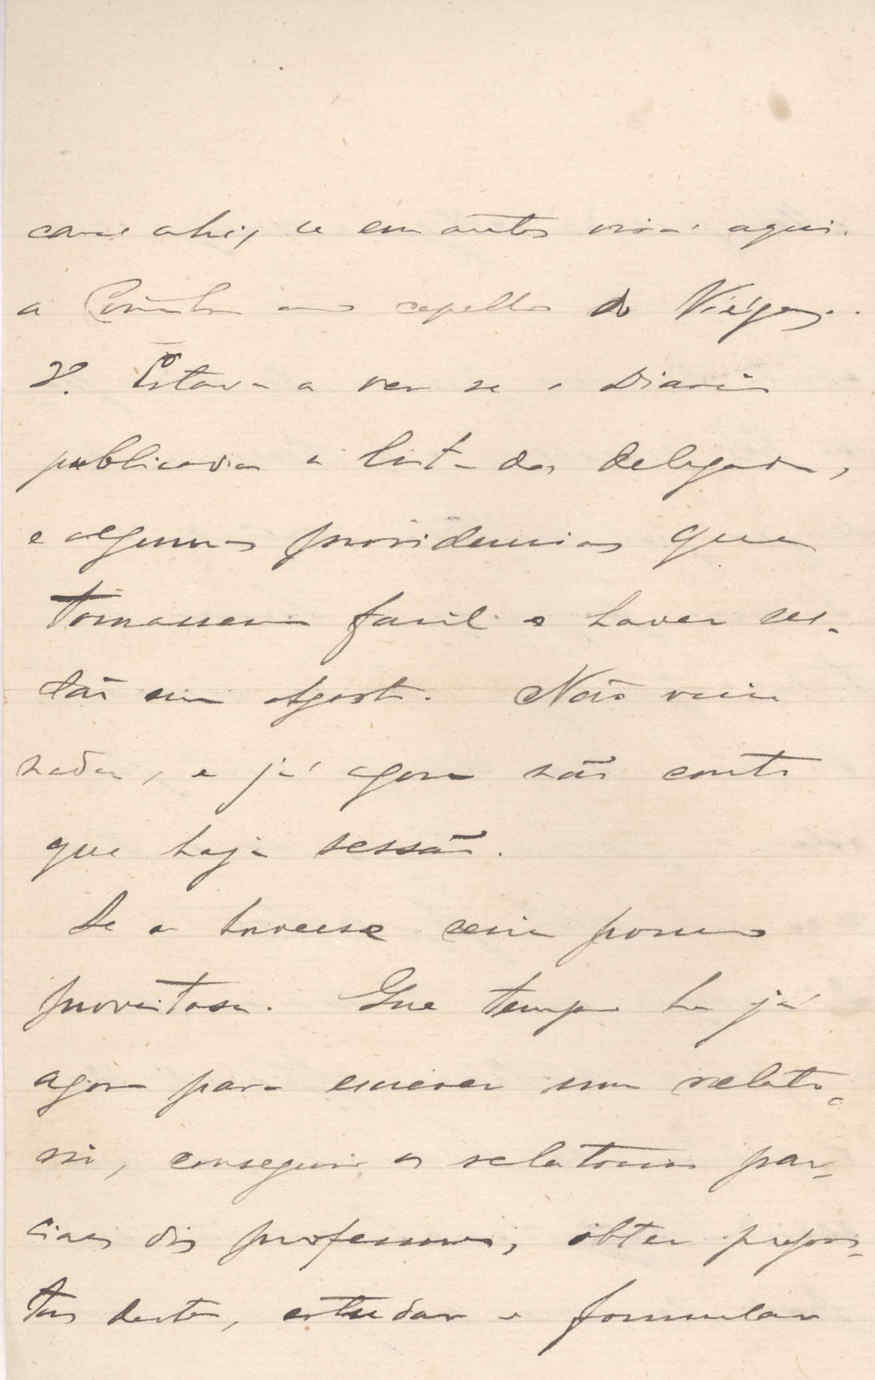 ahi, em antes aqui.
a capello do Viégas.
2.º Estava a ver se o Diario
publicava a lista dos delegados,
e algumas providencias que
tornassem facil o haver ses-
são em Agosto. Não veiu
nada, e já agora não conto
que haja sessão.
Se a houvesse seria pouco
proveitosa. Que tempo ha já
agora para escrever um relato-
rio, conseguir os relatorios par-
ciaes dos professores, obter propos-
tas destes, estudar e formular